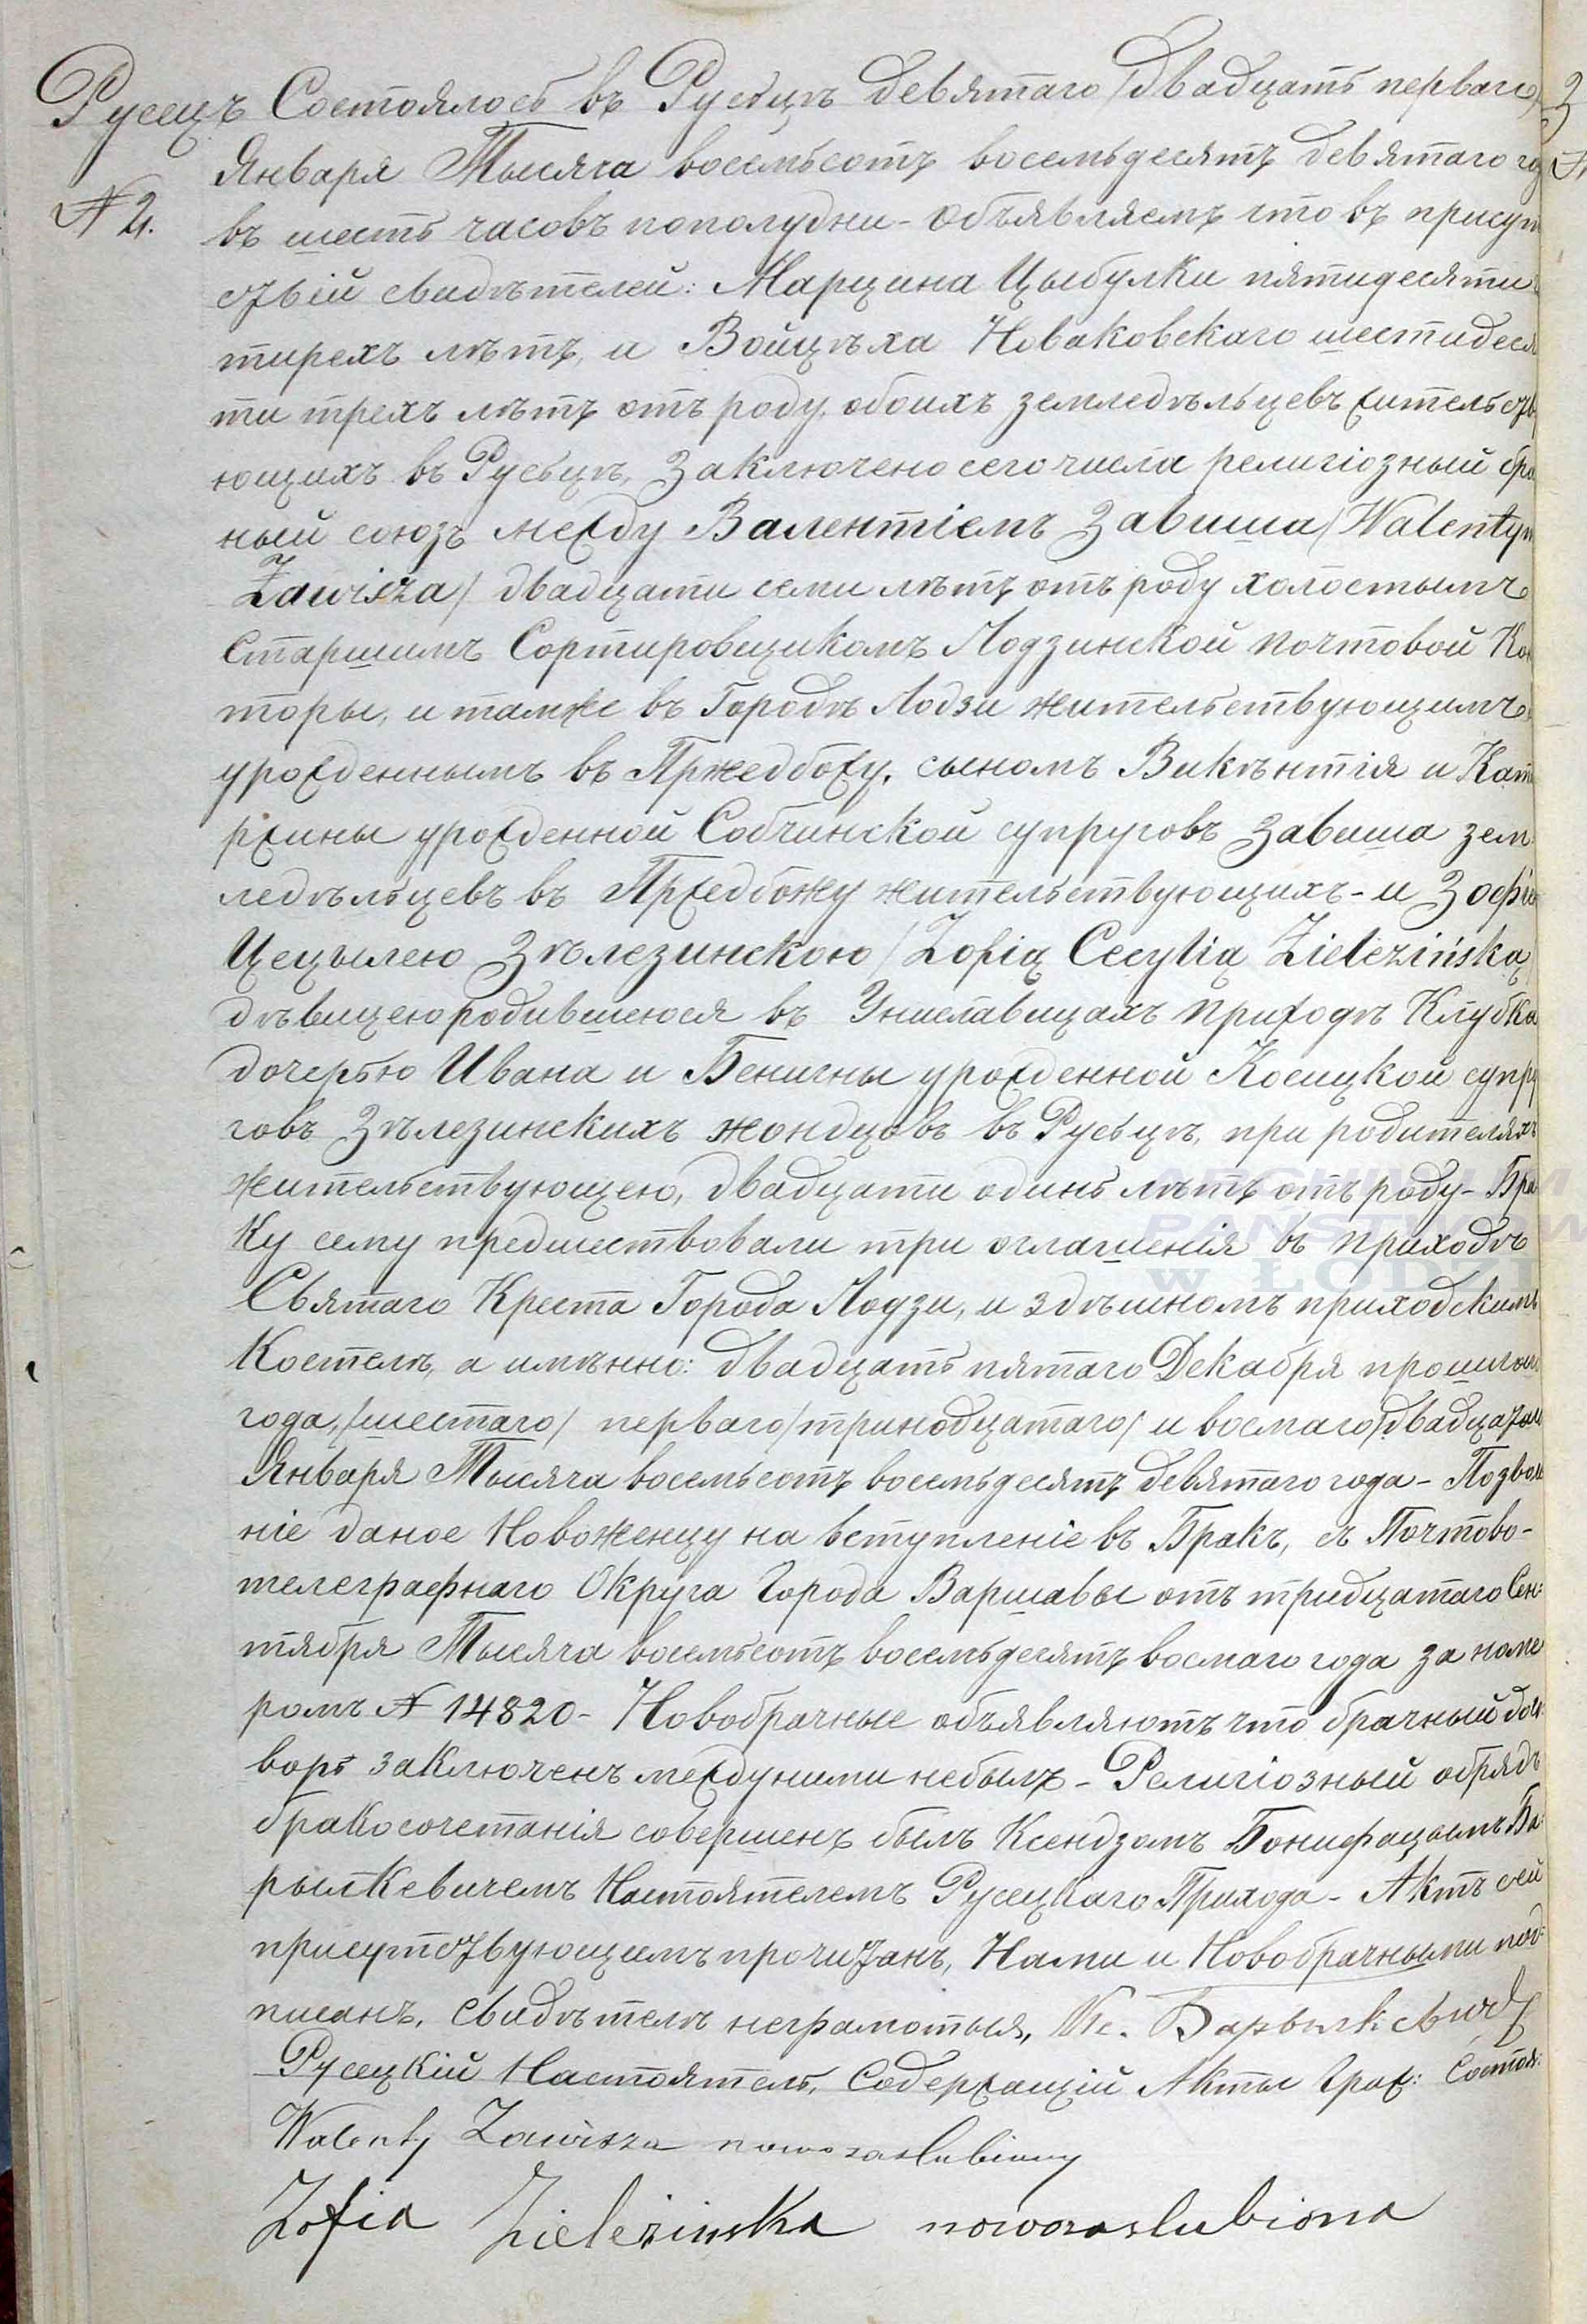 Русецъ Состоялось въ Русьцѣ девятаго /двадцать перваго/
Января Тысяча восемьсотъ восемьдесятъ девятаго го
№ 2. въ шесть часовъ пополудни - Объявляемъ что въ присут
ствіи свидѣтелей: Марцина Цыбулки пятидесяти
тирехъ лѣтъ, и Войцѣха Новаковскаго шестидеся
ти трехъ лѣтъ отъ роду, обоихъ земледѣльцевъ жительств
ющихъ въ Русьцѣ, Заключено сего числа религіозный бра
ный союзъ между Валентіемъ Завиша /Walentym
Zawisza/ двадцати семи лѣтъ отъ роду холостымъ
Старшимъ Сортировщикомъ Лодзинской почтовой Кон
торы, и тамже въ Городѣ Лодзи жительствующимъ
урожденнымъ въ Пржедбожу, сыномъ Викѣнтія и Кат
ржины урожденной Собчинской супруговъ Завиша зем
ледѣльцевъ въ Пржедбожу жительствующихъ - и Зофіею
Цецылею Зѣлезинскою /Zofią Cecylią Zielezińską
дѣвицею родившеюся въ Униславицахъ приходѣ Клубка
дочерью Ивана и Бенигны урожденной Косицкой супру
говъ Зѣлезинскихъ жондцовъ въ Русьцѣ, при родителяхъ
жительствующею, двадцати одинъ лѣтъ отъ роду - Бра
ку сему предшествовали три оглашенія въ приходѣ
Святаго Креста Города Лодзи, и здѣшномъ приходскимъ
Костелѣ, а имѣнно: двадцать пятаго Декабря прошлаго
года, /шестаго/ перваго /тринадцатаго/ и восмаго /двадцатаго
Января Тысяча восемьсотъ восемьдесятъ девятаго года - Позволе
ніе даное Новоженцу на вступленіе въ Бракъ, съ Почтово-
телеграфнаго Округа Города Варшавы отъ тридцатаго Сен:
тября Тысяча восемьсотъ восемьдесятъ восмаго года за номе
ромъ № 14820 - Новобрачные объявляютъ что брачный дого:
воръ заключенъ между ними небылъ - Религіозный обрядъ
бракосочетанія совершенъ былъ Ксендзомъ Бонифацымъ Ба:
рылкевичемъ Настоятелемъ Русецкаго Прихода - Актъ сей
присутствующимъ прочитанъ, Нами и Новобрачными под:
писанъ, свидѣтелѣ неграмотныя,
Русецкій Настоятель, Содержащій Акты Граж: Состоя:
Walenty Zawisza nowozaslubiony
Zofia Zielezinska nowozaslubiona
3
ARCHIWUM
PAŃSTWOW
W ŁODZI